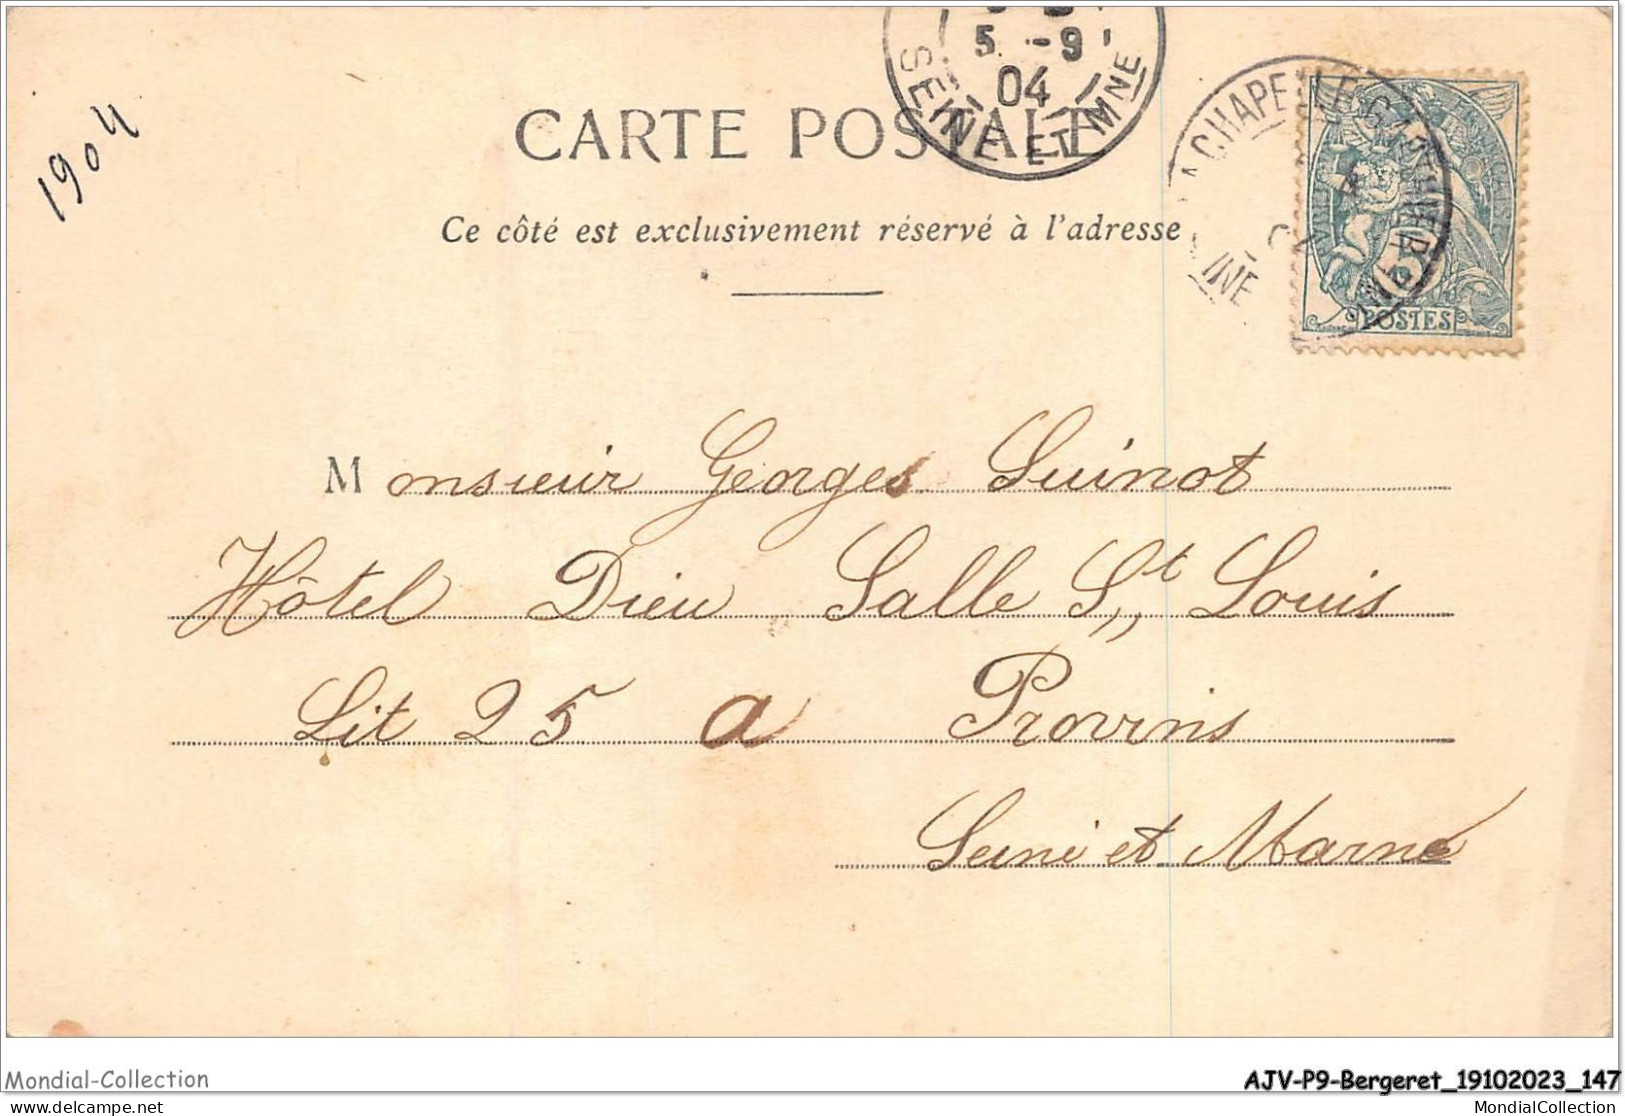 5 -9
04
SEINE ET MNE
1904
CARTE POSTALE
LA CHAPELLE GAUTHIER
Ce côté est exclusivement réservé à l'adresse
5
POSTES
Monsieur Georges Suinot
Hôtel Dieu Salle St Louis
Lit 25 a Provins
Seine et Marne
Mondial-Collection
AJV-P9-Bergeret_19102023_147
mondial-collection
MondialCollection